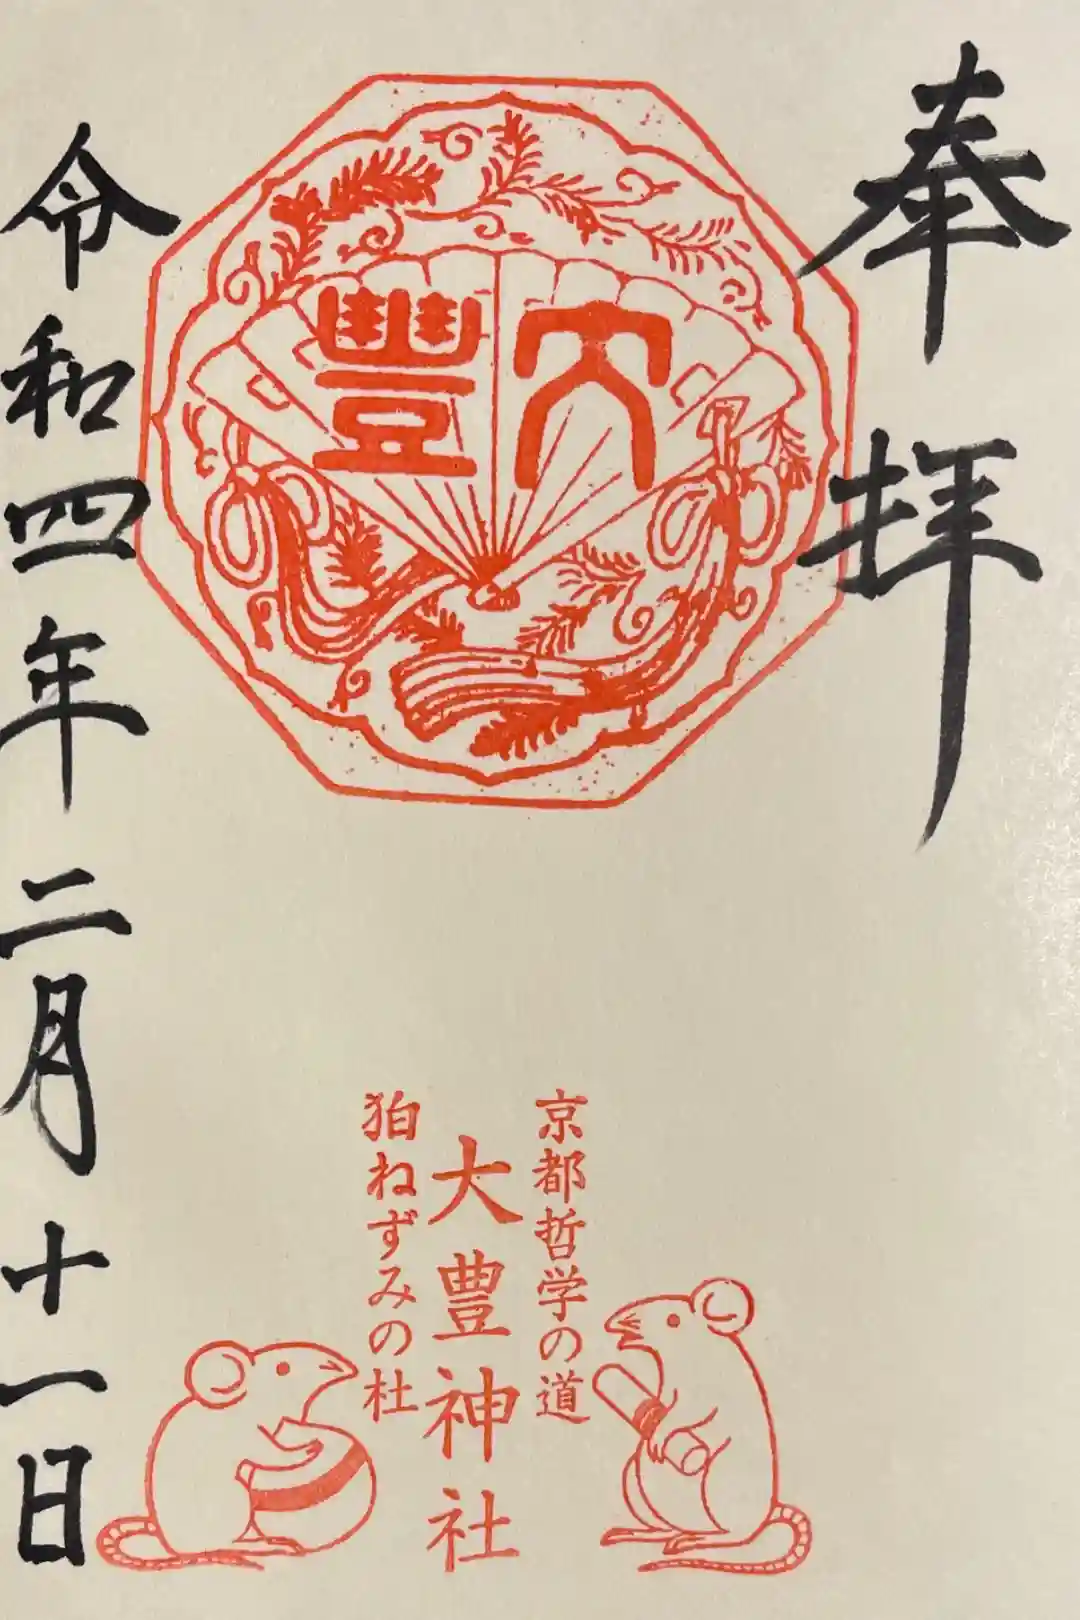 奉拝
大豊
京都哲学の道
大豊神社
狛ねずみの杜
令和四年二月十一日